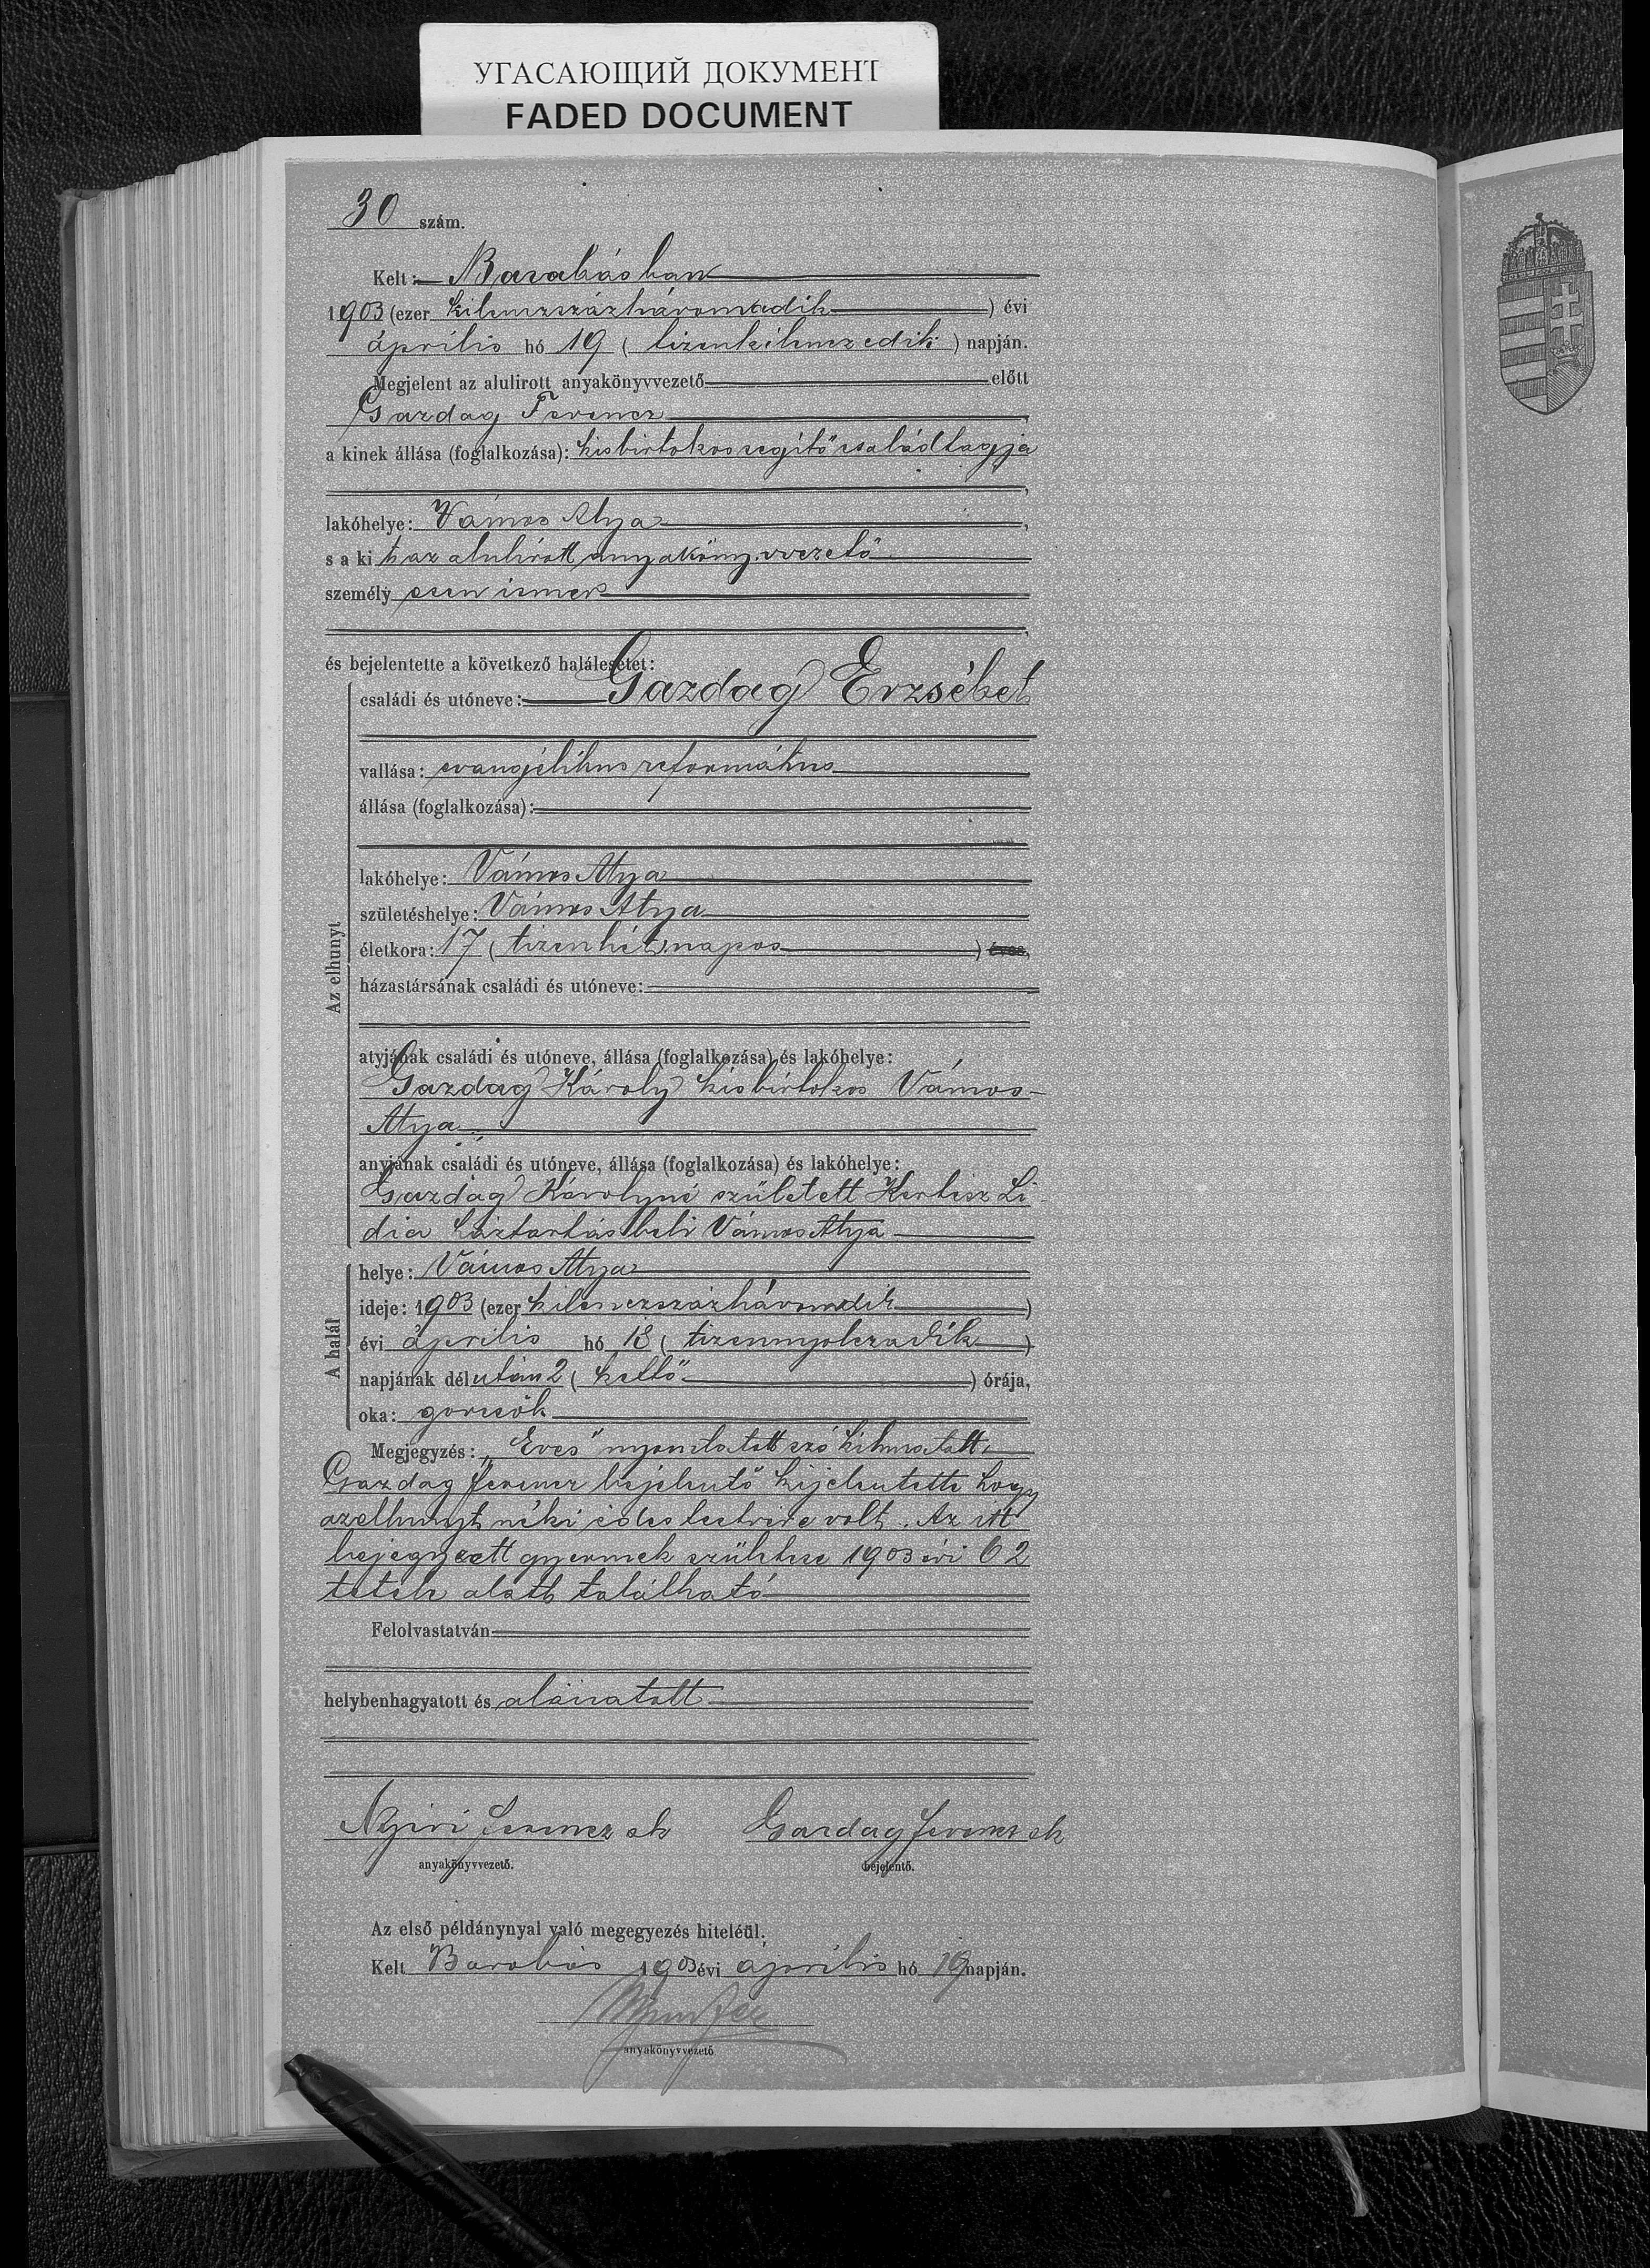 УГАСАЮЩИЙ ДОКУМЕНТ
FADED DOCUMENT
30 szám.
Kelt: Barabásban
1903 (ezer kilenczszázháromadik) évi
április hó 19 (tizenkilenczedik) napján.
Megjelent az alulirott anyakönyvvezető előtt
Gazdag Ferencz,
a kinek állása (foglalkozása): kisbirtokos segítő családtagja
lakóhelye: Vámos Atya,
s a kit az alulírott anyakönyvvezető
személyesen ismer
és bejelentette a következő halálesetet:
Az elhunyt
családi és utóneve: Gazdag Erzsébet
vallása: evangélikus református
állása (foglalkozása):
lakóhelye: Vámos Atya
születéshelye: Vámos Atya
életkora: 17 (tizenhét) napos ) éves,
házastársának családi és utóneve:
atyjának családi és utóneve, állása (foglalkozása) és lakóhelye:
Gazdag Károly kisbirtokos Vámos-
Atya
anyjának családi és utóneve, állása (foglalkozása) és lakóhelye:
Gazdag Károlyné született Kertész Li
dia háztartásbeli Vámos Atya
A halál
helye: Vámos Atya
ideje: 1903 (ezer kilenczszázháromadik)
évi április hó 18 (tizennyolczadik)
napjának délután 2 (kettő) órája,
oka: görcsök
Megjegyzés: „Éves" nyomtatott szó kihuzatott.
Gazdag Ferencz bejelentő kijelentette hogy
az elhunyt néki édes testvére volt. Az itt
bejegyzett gyermek születése 1903 évi 62
tétele alatt található
Felolvastatván
helybenhagyatott és aláiratott
Nyiri Ferencz sk Gazdag Ferencz sk
anyakönyvvezető. bejelentő.
Az első példánynyal való megegyezés hiteléül.
Kelt Barabás 1903 évi április hó 19 napján.
anyakönyvvezető